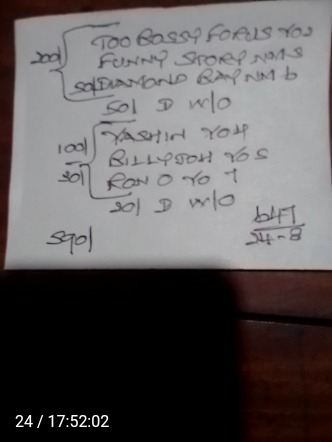 200/ TOO BOSSY FOR US YO2
FUNNY STORY NM5
50/ DIAMOND BAY NM 6
50/ D W/O
100/ YASHIN YO4
BILLYJOH YO5
30/ RON O YO 7
20/ D W/O
590/
647
24-8
24 / 17:52:02